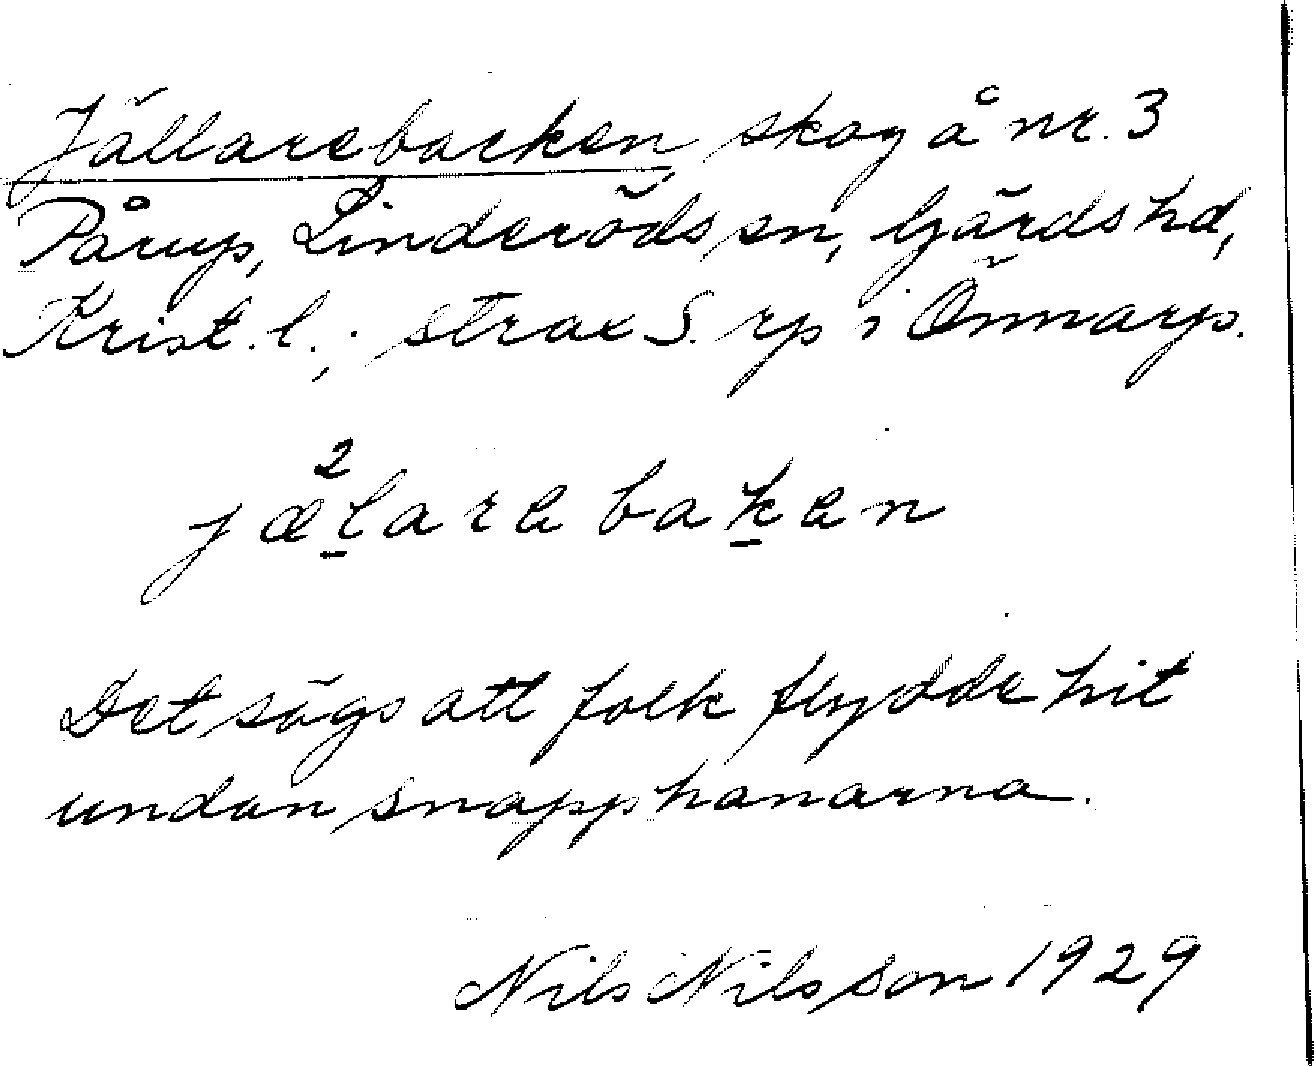 Jällarebacken, skog å nr. 3
Pårup, Linderöds sn, Gärds hd,
Krist. l.; strax S. rp i Önnarp.
2
jælarebaken
Det sägs att folk flydde hit
undan snapphanarna.
Nils Nilsson 1929